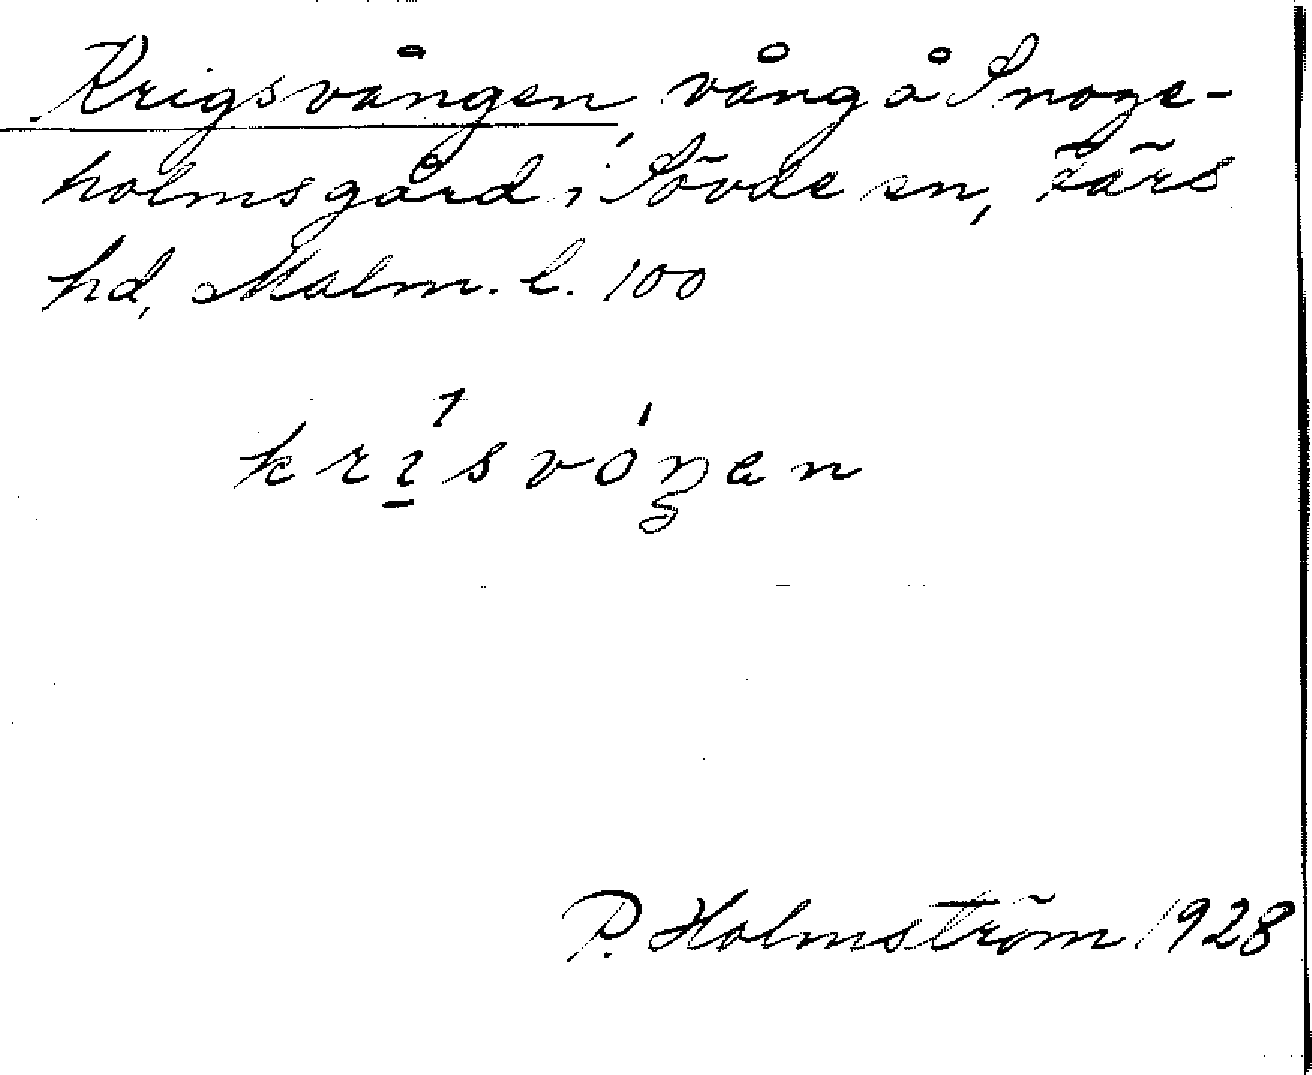 Krigsvången, vång å Snoge-
holmsgård i Sövde sn, Färs
hd, Malm. l. 100
krisvóŋen
P. Holmström 1928